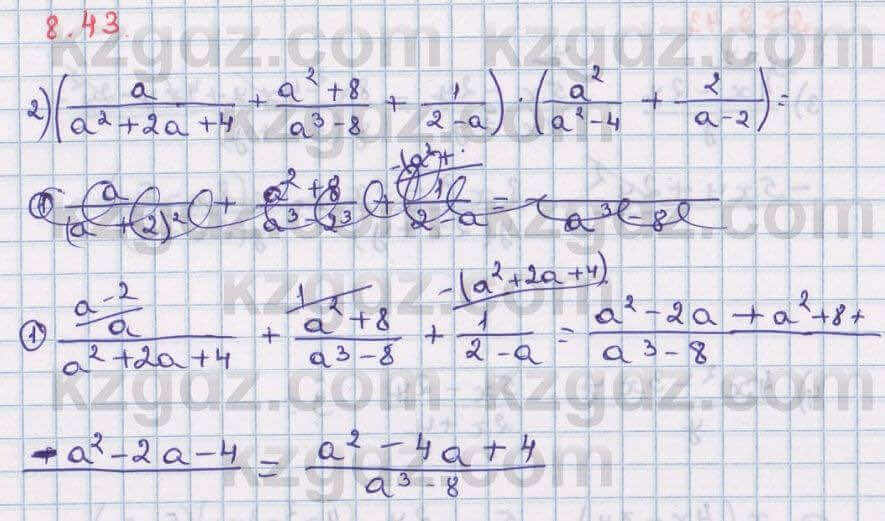 8.43.
2) (a/(a²+2a+4) + (a²+8)/(a³-8) + 1/(2-a)) · (a²/(a²-4) + 2/(a-2)) =
① a/(a²+2a+4) + (a²+8)/(a³-8) + 1/(2-a) = (a²-2a+a²+8+
a-2 1 -(a²+2a+4)
-a²-2a-4)/(a³-8) = (a²-4a+4)/(a³-8)
kzgdz.com